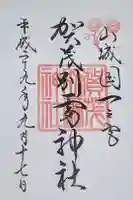 山城国一之宮
賀茂別雷神社
平成二九年九月十七日